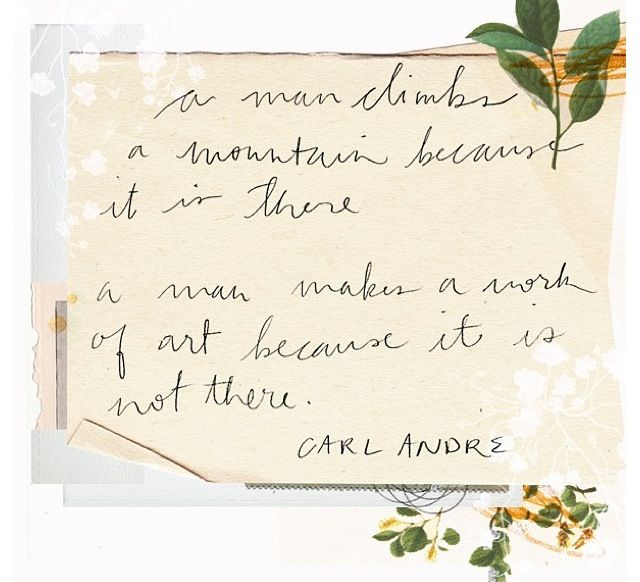 a man climbs
a mountain because
it is there
a man makes a work
of art because it is
not there.
CARL ANDRE